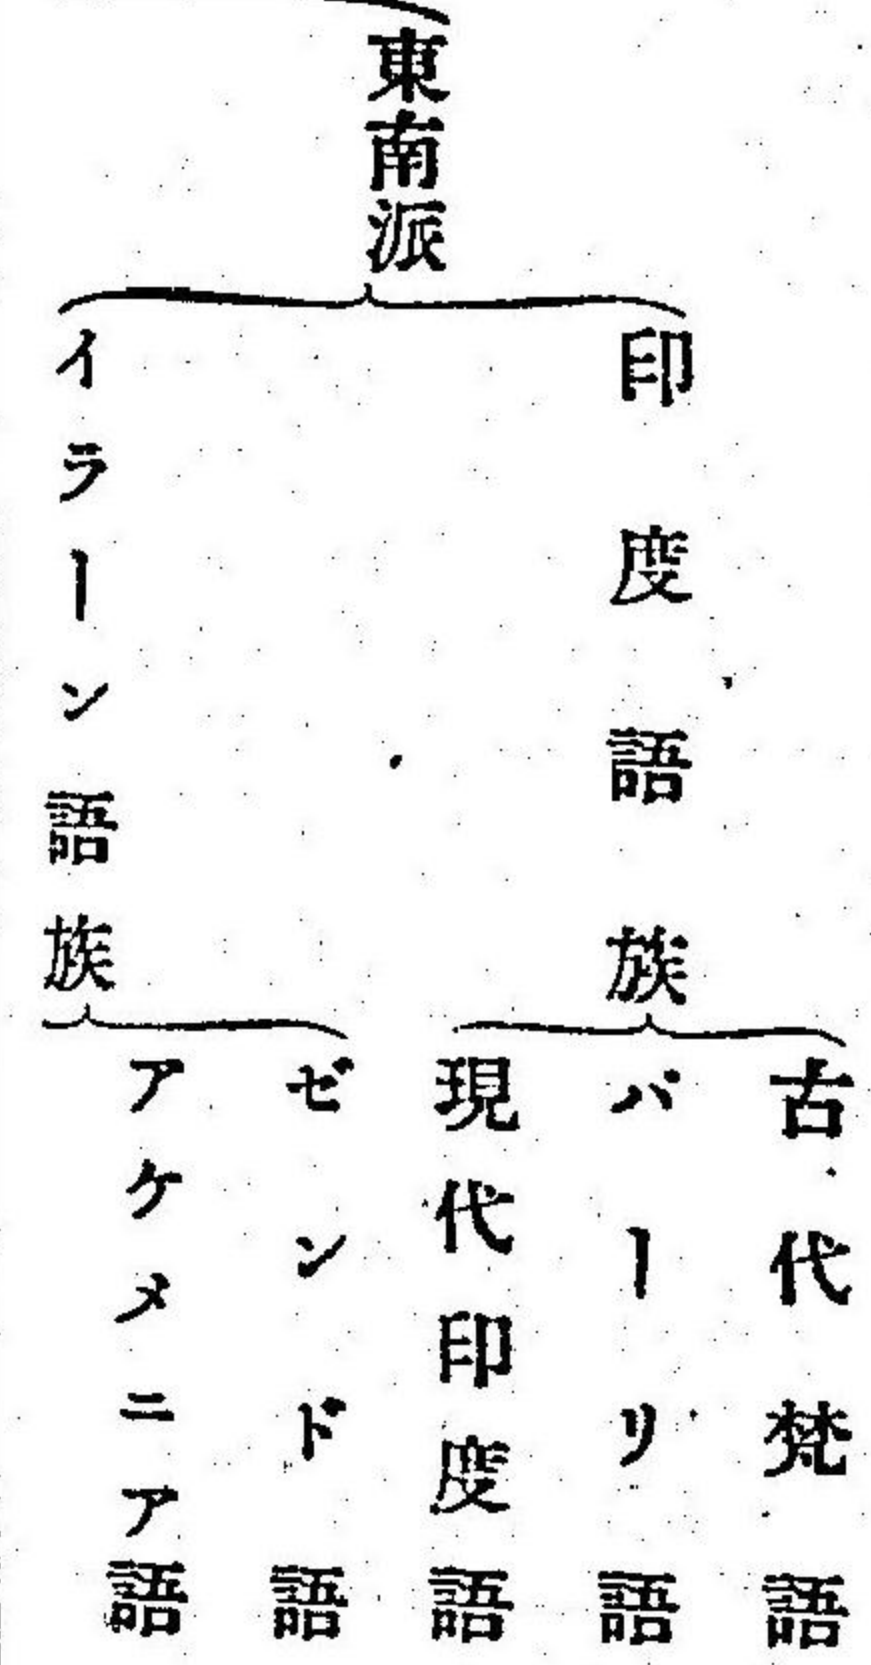 東南派
印度語族
古代梵語
パーリ語
現代印度語
イラーン語族
ゼンド語
アケメニア語